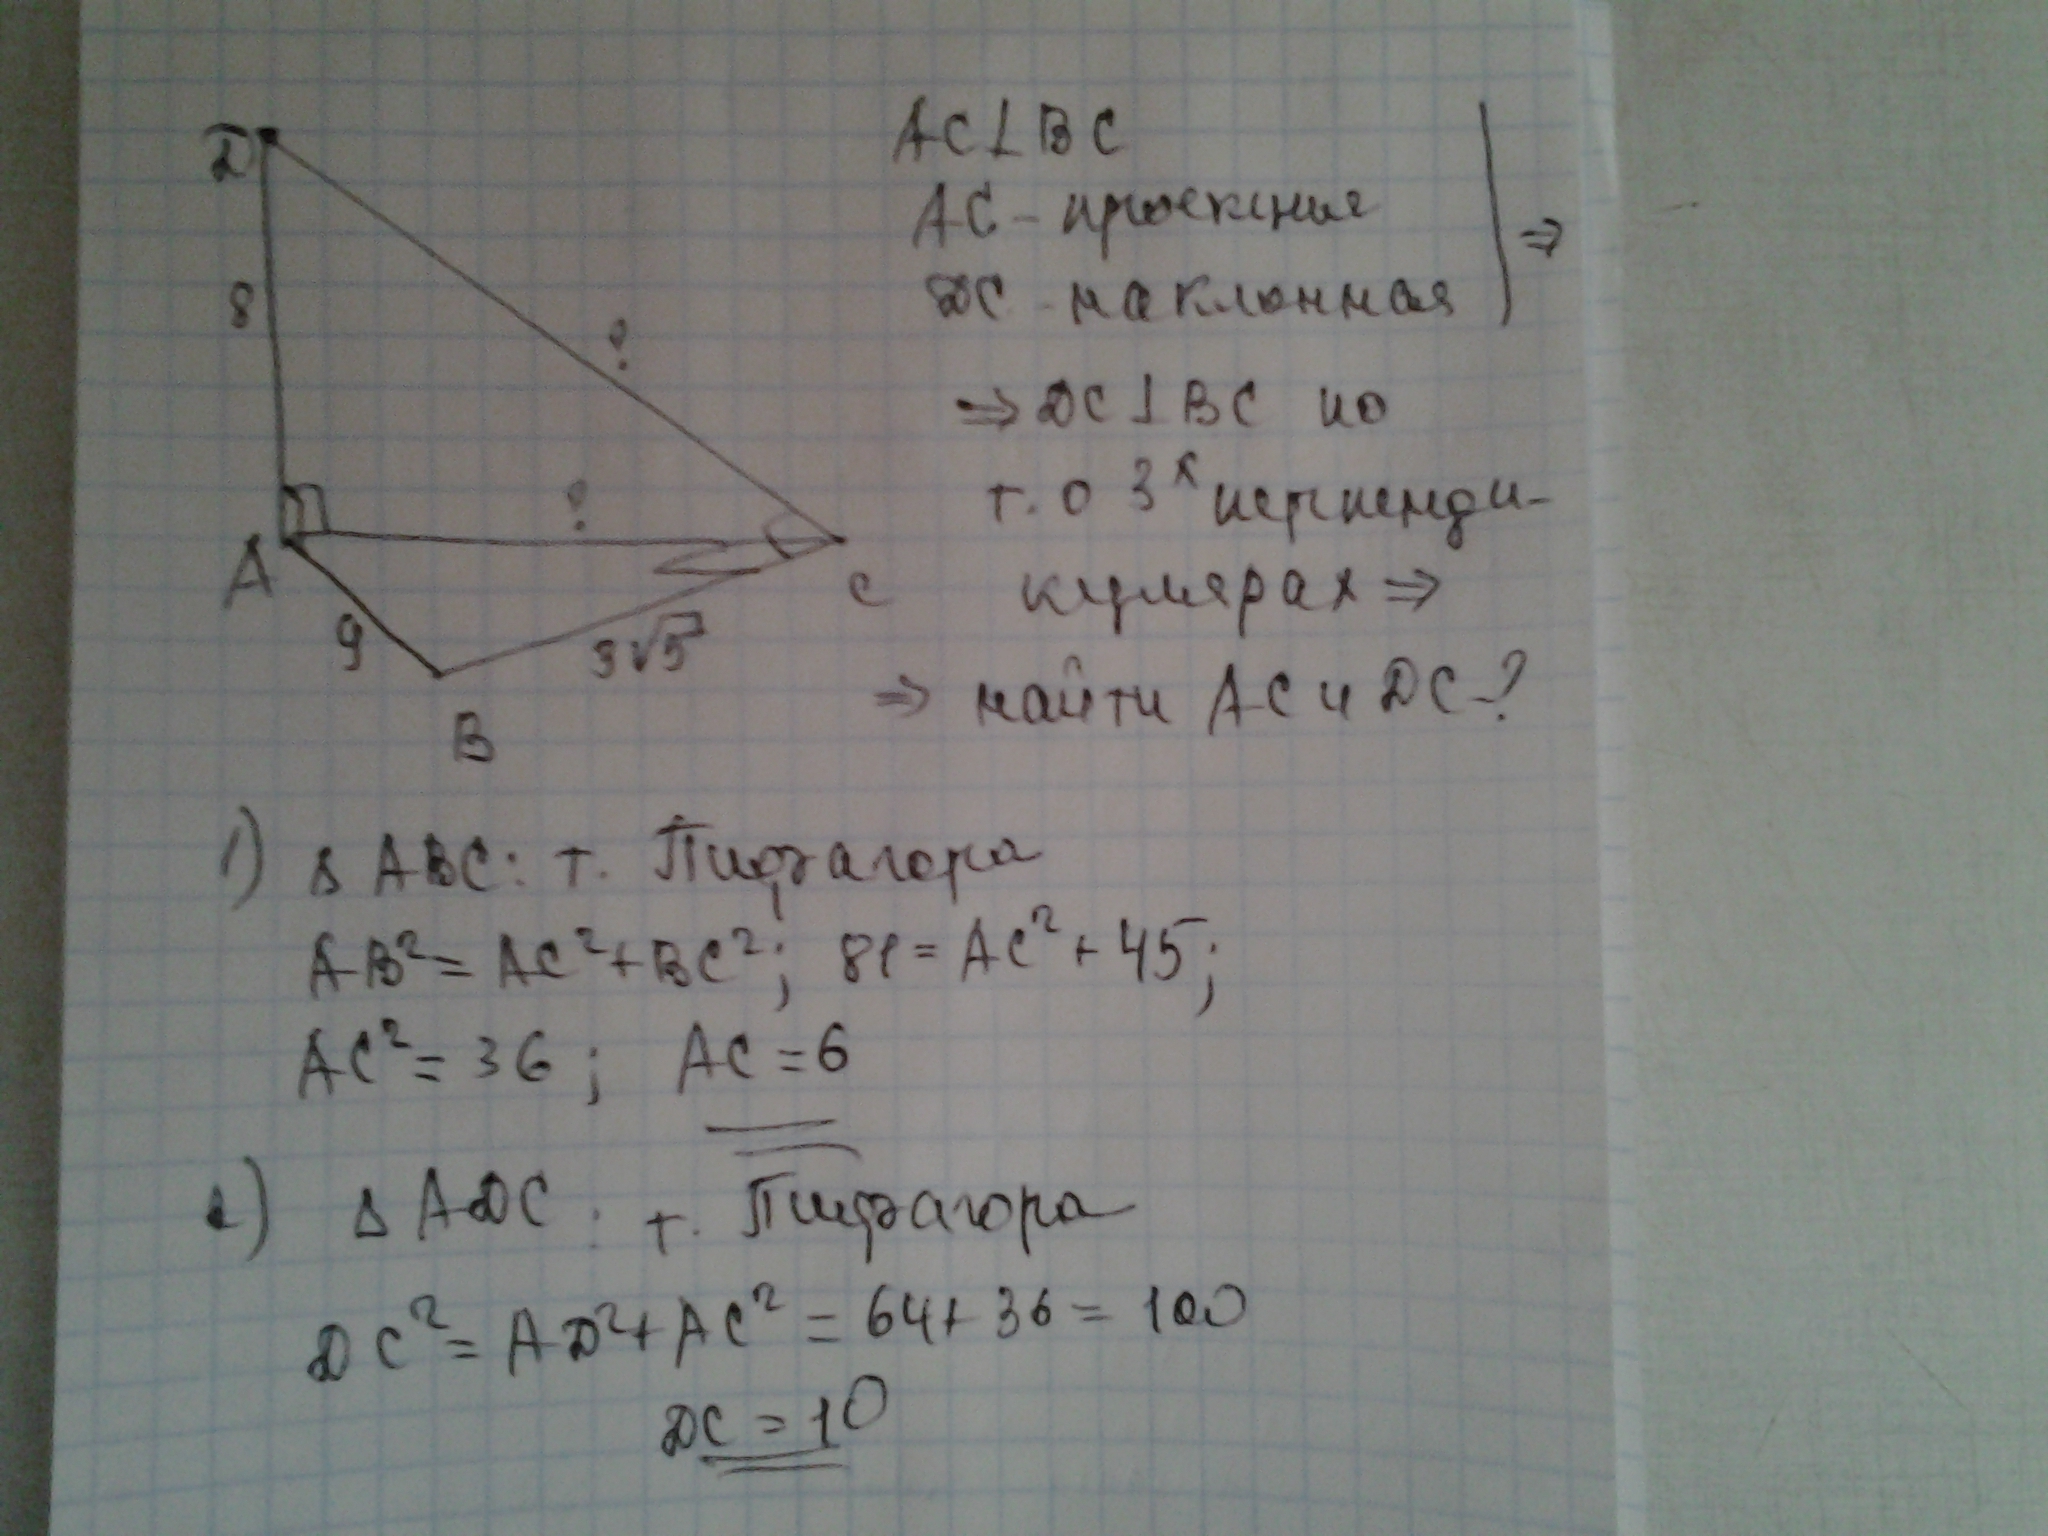 D
8
?
?
A
C
9
3√5
B
AC⊥BC
AC - проекция
DC - наклонная
⇒
⇒ DC⊥BC по
т. о 3х перпенди-
кулярах ⇒
⇒ найти AC и DC-?
1) Δ ABC: т. Пифагора
AB²= AC²+BC²; 81= AC²+45;
AC²=36; AC=6
2) Δ ADC: т. Пифагора
DC²= AD²+AC² = 64+36= 100
DC = 10